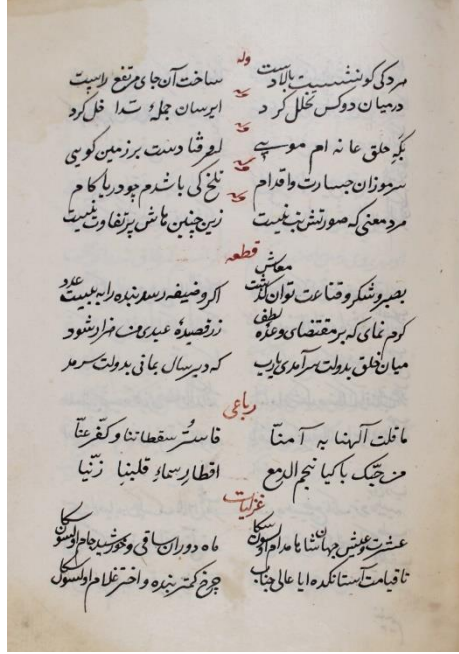 وله
مردکی کو نشست بالادست ساخت آن جای مرتفع را پست
در میان دو کس تخلل کرد
حلق عانه ام موسیی بر زمین
سرموزان جسارت واقدام تلخ کی باشدم چو در یا کام
مرد معنی که صورتش نیست زین چنین پر تفاوت نیست
قطعه
بصبر و شکر و قناعت توان گذشت معاش اگر وضیفه رسد بنده را به بیست عدد
کرم نمای که بر مقتضای وعده لطف زر قصیدهٔ عیدی شود
میان خلق بدولت سرآمدی یارب که دیر سال بمانی بدولت سرمد
رباعی
ما قلت آلهنا به آمنّا فاستر سقطاتنا و کفّر عنّا
من حبّک باکیا نجم الدمع اقطار سماء قلبنا زنّیا
غزلیات
عشرت و عیش جهان شاها مدام اولسون سکا ماه دوران ساقی و خورشید جام اولسون سکا
تا قیامت آستانکده ایا عالی جناب چرخ کمتر بنده و اختر غلام اولسون سکا